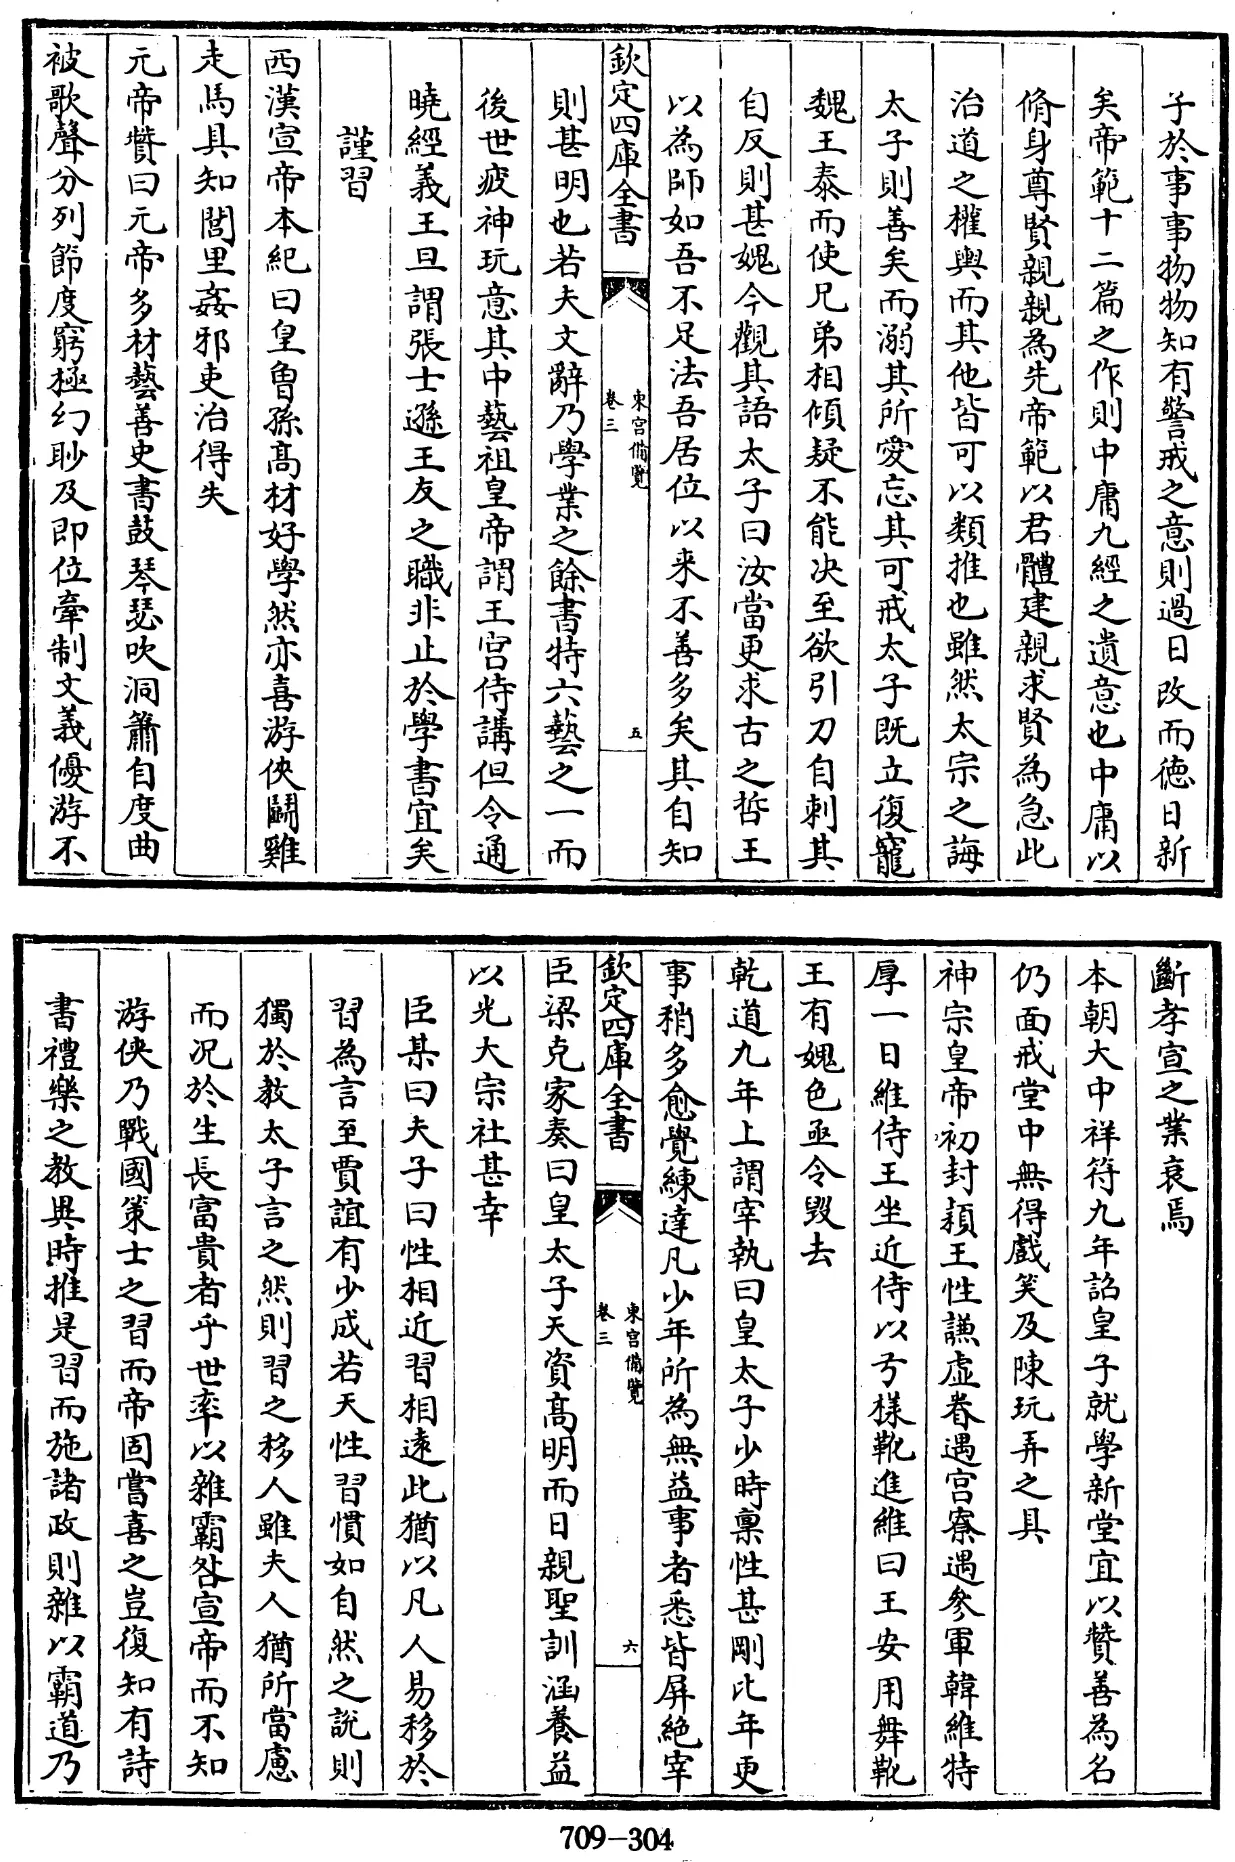 子於事事物物知有警戒之意則過日改而德日新
矣帝範十二篇之作則中庸九經之遺意也中庸以
脩身尊賢親親為先帝範以君體建親求賢為急此
治道之權輿而其他皆可以類推也雖然太宗之誨
太子則善矣而溺其所愛忘其可戒太子既立復寵
魏王泰而使兄弟相傾疑不能决至欲引刀自刺其
自反則甚媿今觀其語太子曰汝當更求古之哲王
以為師如吾不足法吾居位以来不善多矣其自知
欽定四庫全書
東宫備覽
卷三
五
則甚明也若夫文辭乃學業之餘書特六藝之一而
後世疲神玩意其中藝祖皇帝謂王宫侍講但令通
曉經義王旦謂張士遜王友之職非止於學書宜矣
謹習
西漢宣帝本紀曰皇曾孫高材好學然亦喜游俠鬭雞
走馬具知閭里姦邪吏治得失
元帝贊曰元帝多材藝善史書鼓琴瑟吹洞簫自度曲
被歌聲分列節度窮極幻眇及即位牽制文義優游不
斷孝宣之業衰焉
本朝大中祥符九年詔皇子就學新堂宜以贊善為名
仍面戒堂中無得戲笑及陳玩弄之具
神宗皇帝初封潁王性謙虛眷遇宫寮遇參軍韓維特
厚一日維侍王坐近侍以弓樣靴進維曰王安用舞靴
王有媿色亟令毁去
乾道九年上謂宰執曰皇太子少時稟性甚剛比年更
事稍多愈覺練達凡少年所為無益事者悉皆屏絶宰
欽定四庫全書
東宫備覽
卷三
六
臣梁克家奏曰皇太子天資高明而日親聖訓涵養益
以光大宗社甚幸
臣某曰夫子曰性相近習相遠此猶以凡人易移於
習為言至賈誼有少成若天性習慣如自然之說則
獨於教太子言之然則習之移人雖夫人猶所當慮
而况於生長富貴者乎世率以雜霸咎宣帝而不知
游俠乃戰國策士之習而帝固嘗喜之豈復知有詩
書禮樂之教與時推是習而施諸政則雜以霸道乃
709-304